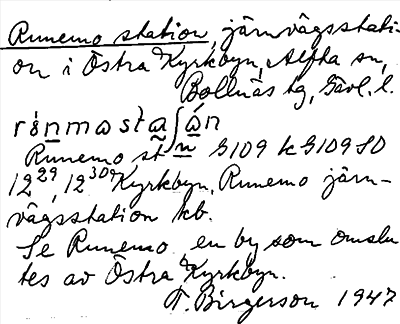 Runemo station, järnvägsstati-
on i Östra Kyrkbyn, Alfta sn,
Bollnäs tg, Gävl. l.
Runemo st G109 k G109 SO
12²⁹, 12³⁰ Kyrkbyn, Runemo järn-
vägsstation kb.
Se Runemo en by som omslu
tes av Östra Kyrkbyn.
T. Birgerson 1947